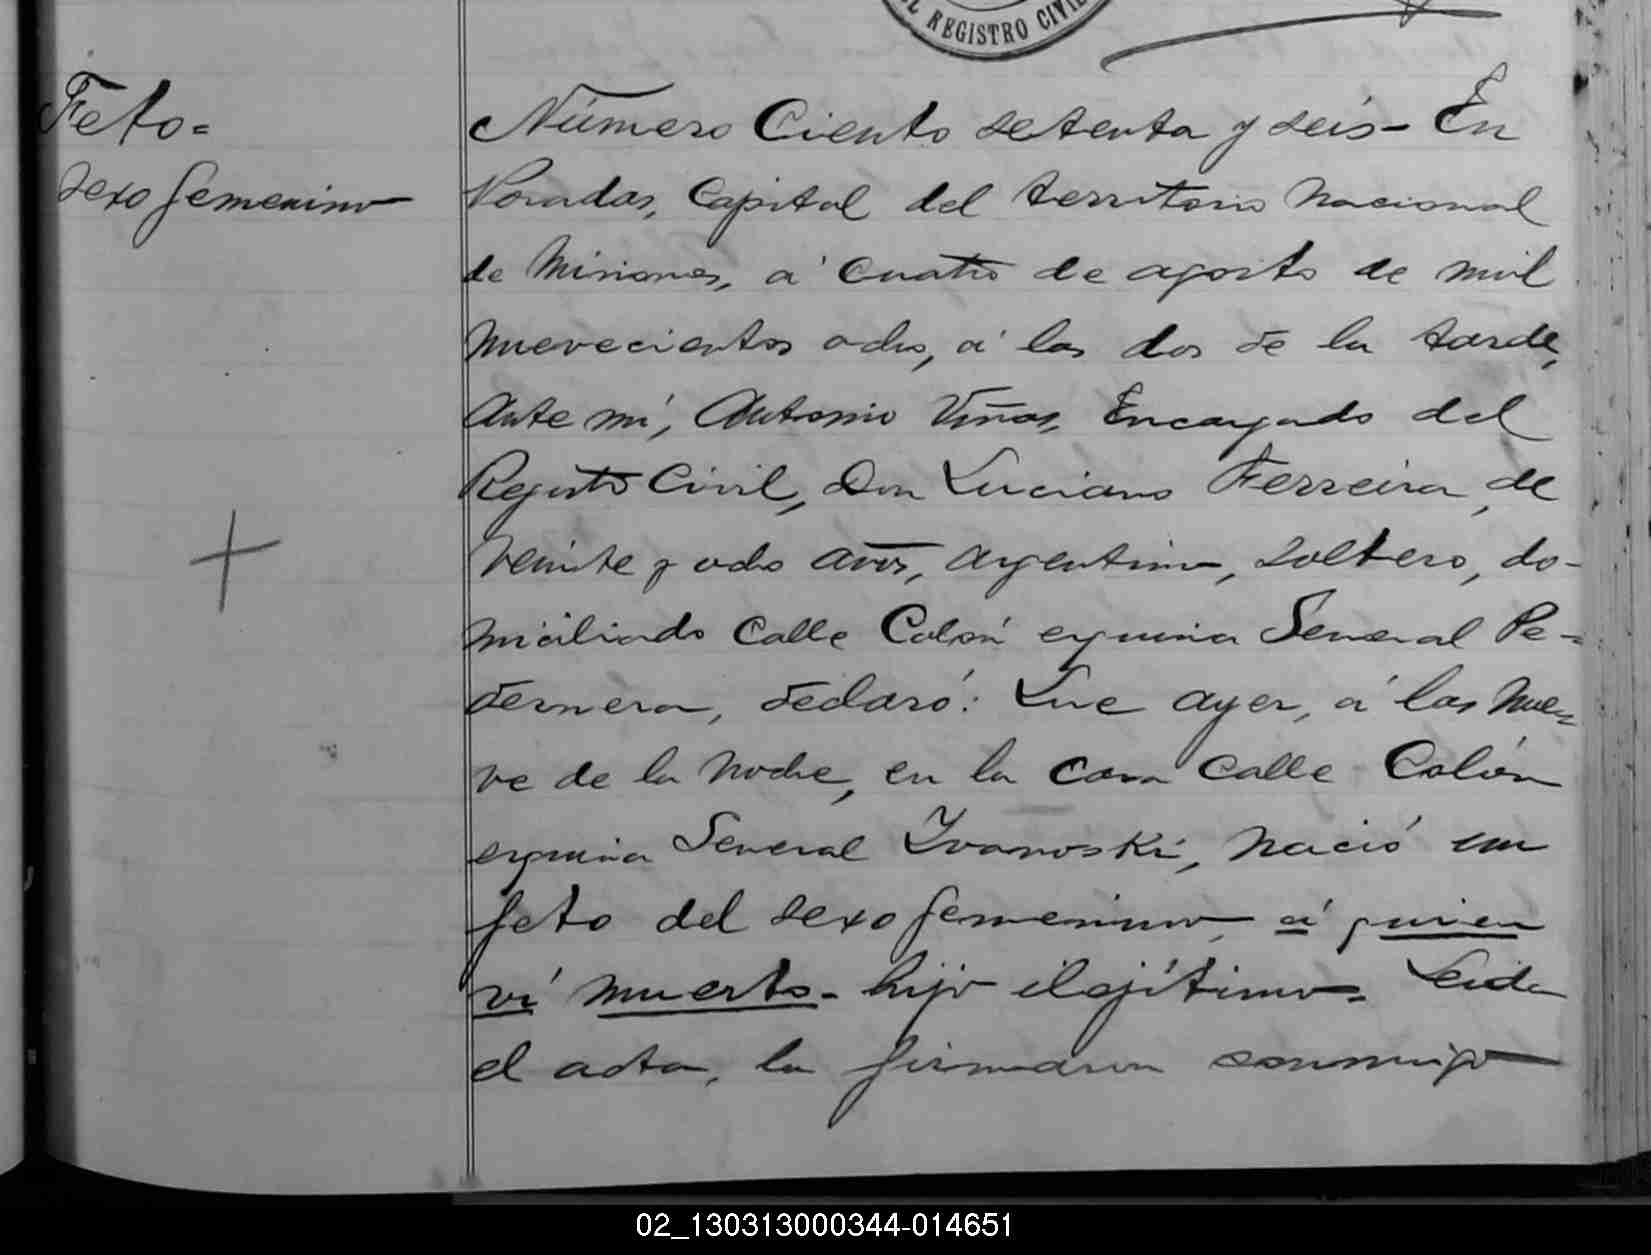 EL REGISTRO CIVIL
Feto=
sexo femenino
Número Ciento setenta y seis - En
Posadas, Capital del territorio Nacional
de Misiones, á cuatro de agosto de mil
nuevecientos ocho, á las dos de la tarde,
Ante mí, Antonio Viñas, Encargado del
Registro Civil, Don Luciano Ferreira, de
veinte y ocho años, argentino, soltero, do-
miciliado Calle Colón esquina General Pe-
dernera, declaró: Que ayer, á las nue-
ve de la noche, en la casa calle Colón
esquina General Ivanoski, nació un
feto del sexo femenino, á quien
ví muerto - hijo ilejítimo. Leida
el acta, la firmaron conmigo
02_130313000344-014651